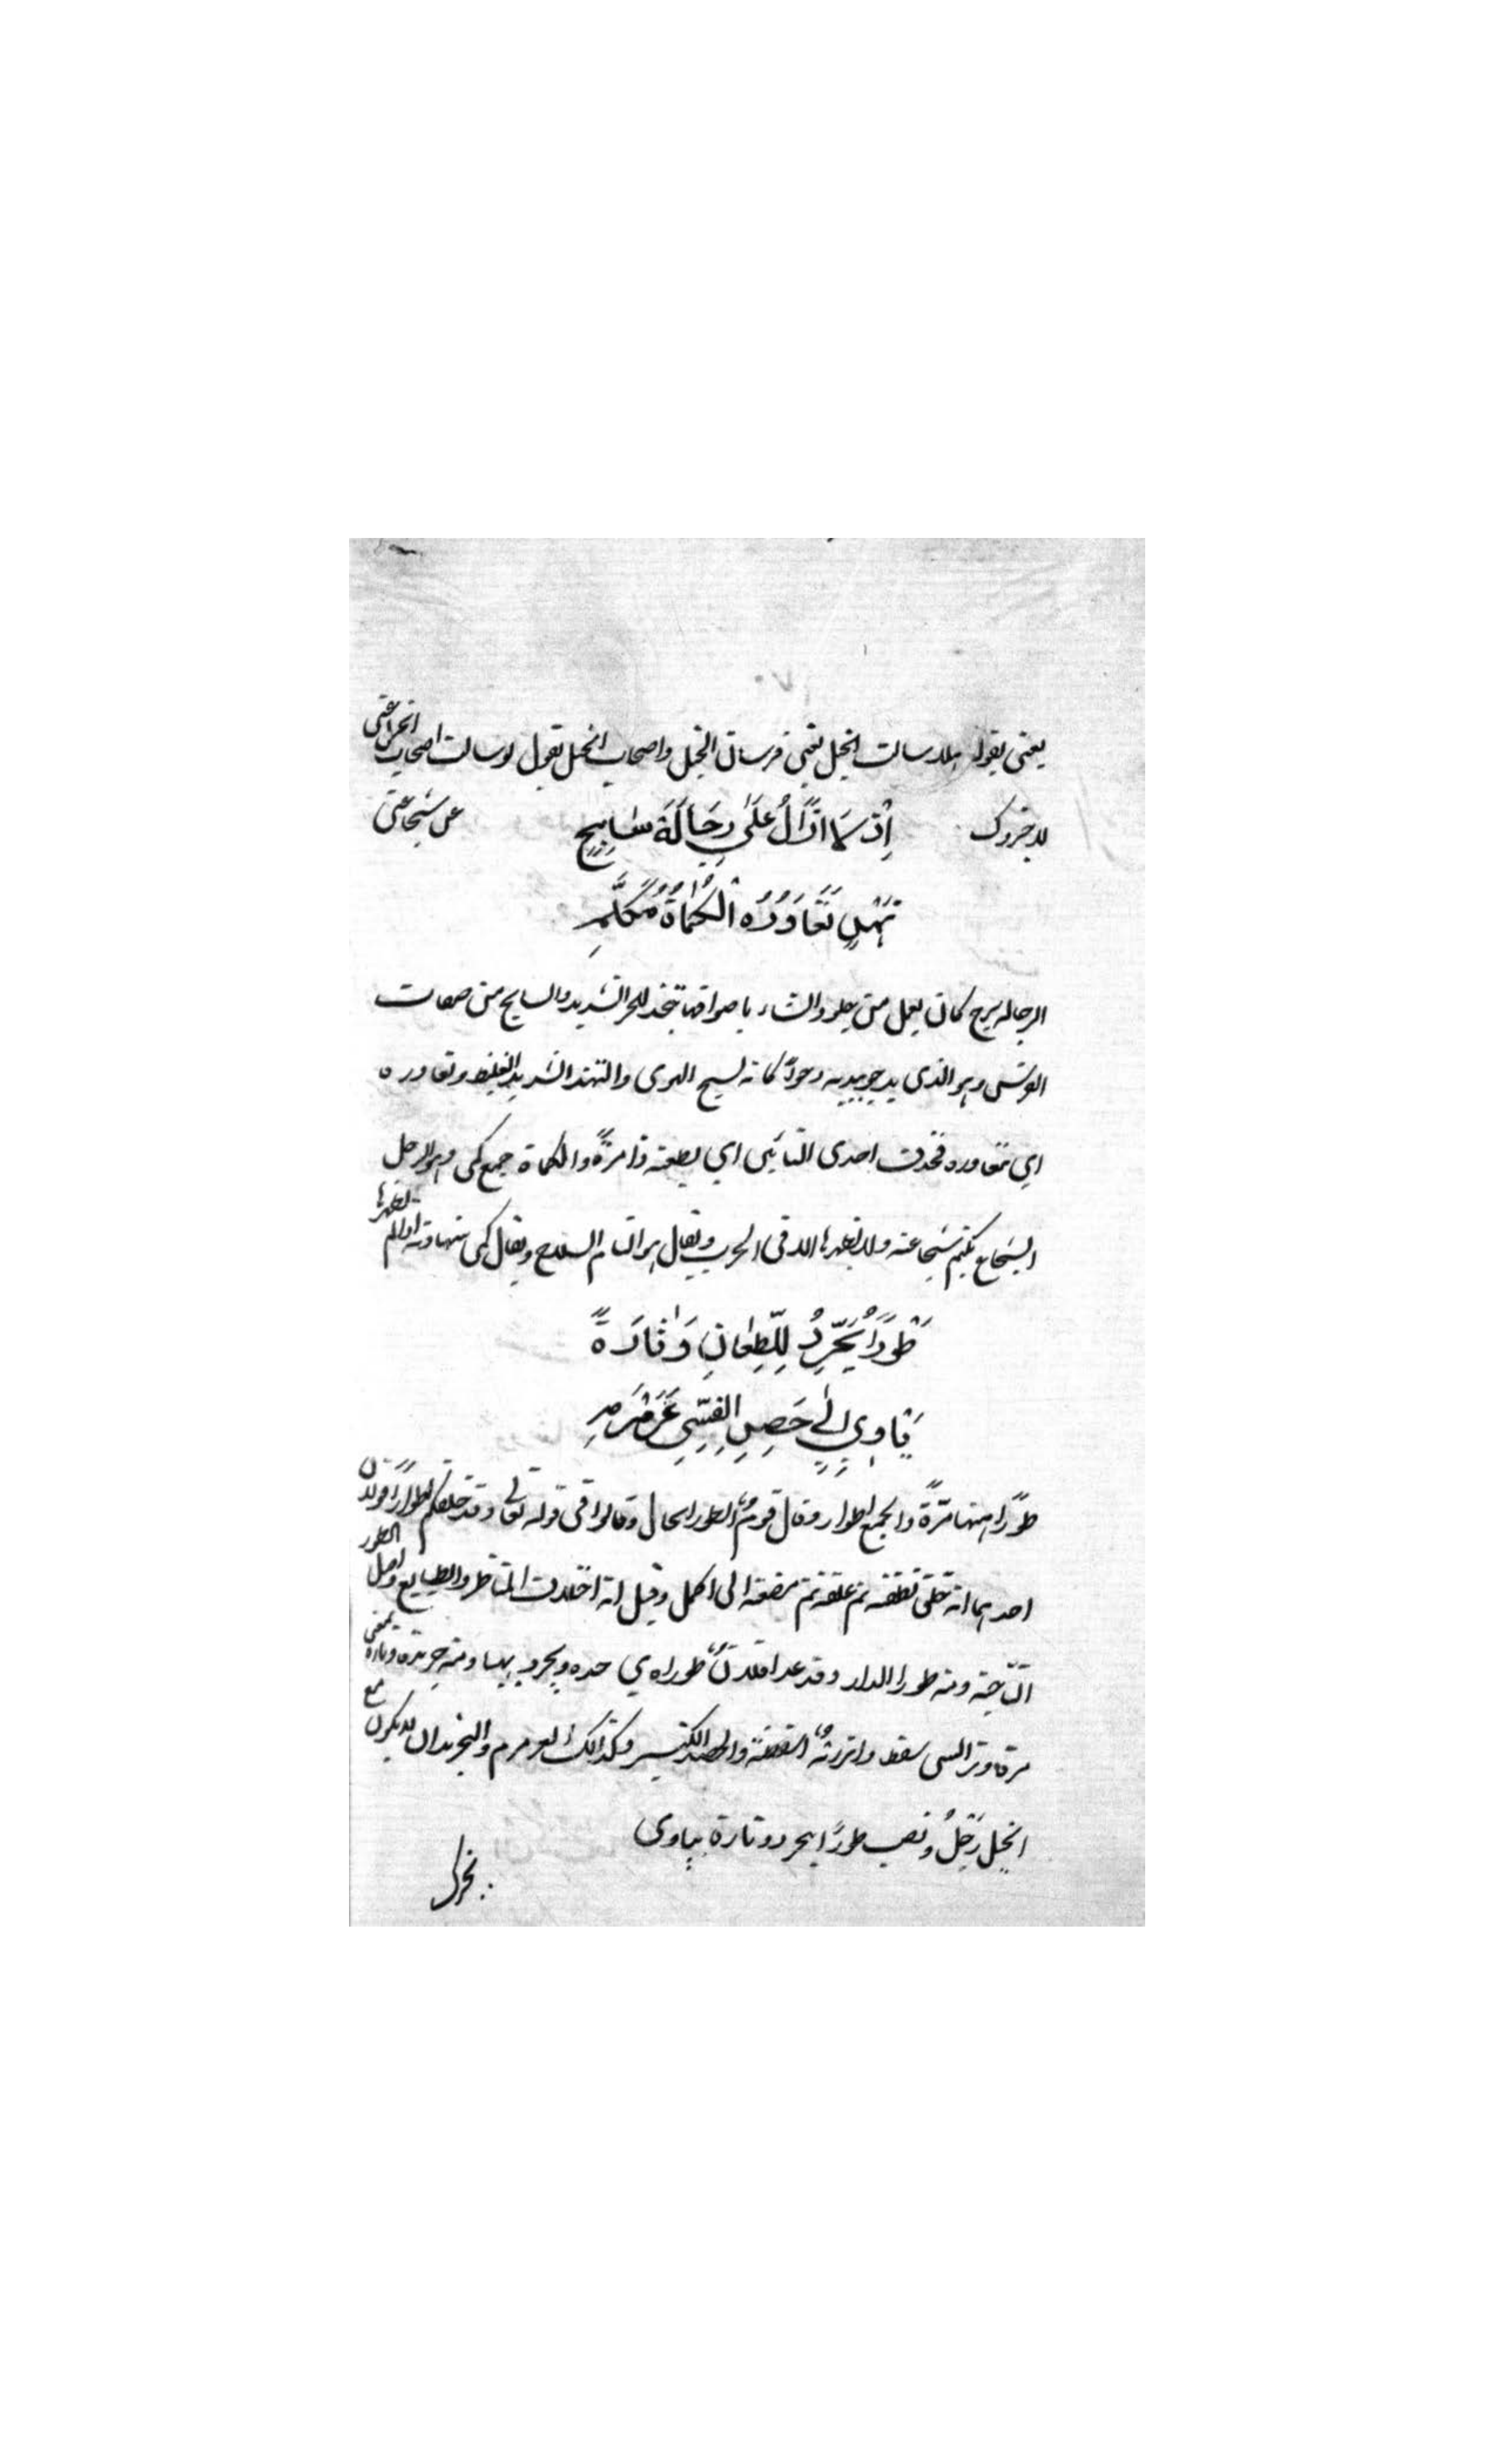 يعنى بقوله هلا سالت الخيل يعنى فرسان الخيل واصحاب الخيل يقول لو سالت اصحاب الخيل عنى
لاخبروك عن شجاعتى
اِذْ لَا اَزَالُ عَلَى رِحَالَةِ سَابِحٍ
نَهْدٍ تَعَاوَرُه الْكُمَاةُ مُكَلَّمِ
الرحاله سرج كان يعمل من جلود الشاء باصوافها تتخذ للجرى الشديد والسابح من صفات
الفرس وهو الذى يدحو بيديه دحوا كانه يسبح الهوى والنهد الشديد الغليظ وتعاوره
اي تتعاوره فحذفت احدى التائين اي يطعنه ذا مرّةً والكماة جمع كمى وهو الرجل
الشجاع يكتم شجاعته ولا يظهرها الا فى الحرب ويقال هو التام السلاح ويقال كمى شهادته اذا لم يظهرها
طَوْرًا يُجَرِّدُ لِلطِّعَانِ وَتَارَةً
يَاوِي اِلَى حَصِدِ الْقِسِيِّ عَرَمْرَمِ
طورًا منها مَرّةً والجمع اطوار وقال قومٌ الطور الحال وقالوا فى قوله تعالى وقد خلقكم اطوارًا قولان
احدهما انه خلق نطفه ثم علقه ثم مضغه الى ان كمل وقيل انه اختلاف المناظر والطبايع واصل الطور
النّاحية ومنه طور الدار وقد عدا فلانٌ طوره اي حده ويجرد يهيا ومنه جريدة وتارة بمعنى
مرة وتر الشى سقط واتررتُه اسقطتهُ والحصد الكثير وكذالك العرمرم والتجريد ان لا يكون مع
الخيل رَجِلٌ ونصب طورًا بيجرد وتارة بياوى